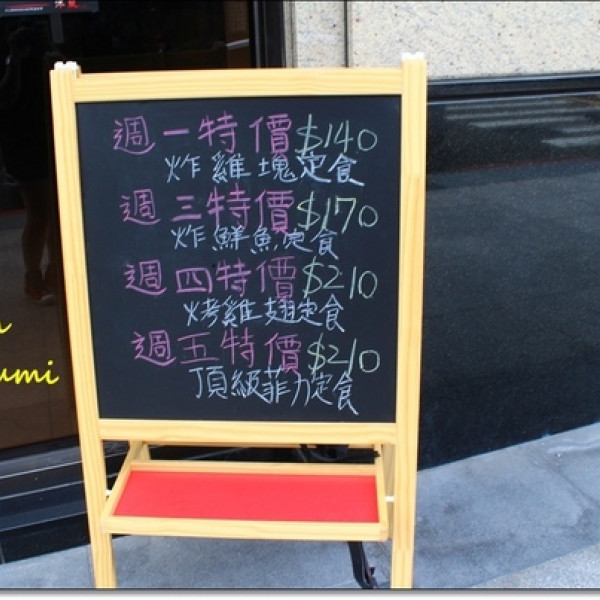 週一特價$140
炸雞塊定食
週三特價$170
炸鮮魚定食
週四特價$210
烤雞翅定食
週五特價$210
頂級菲力定食
umi